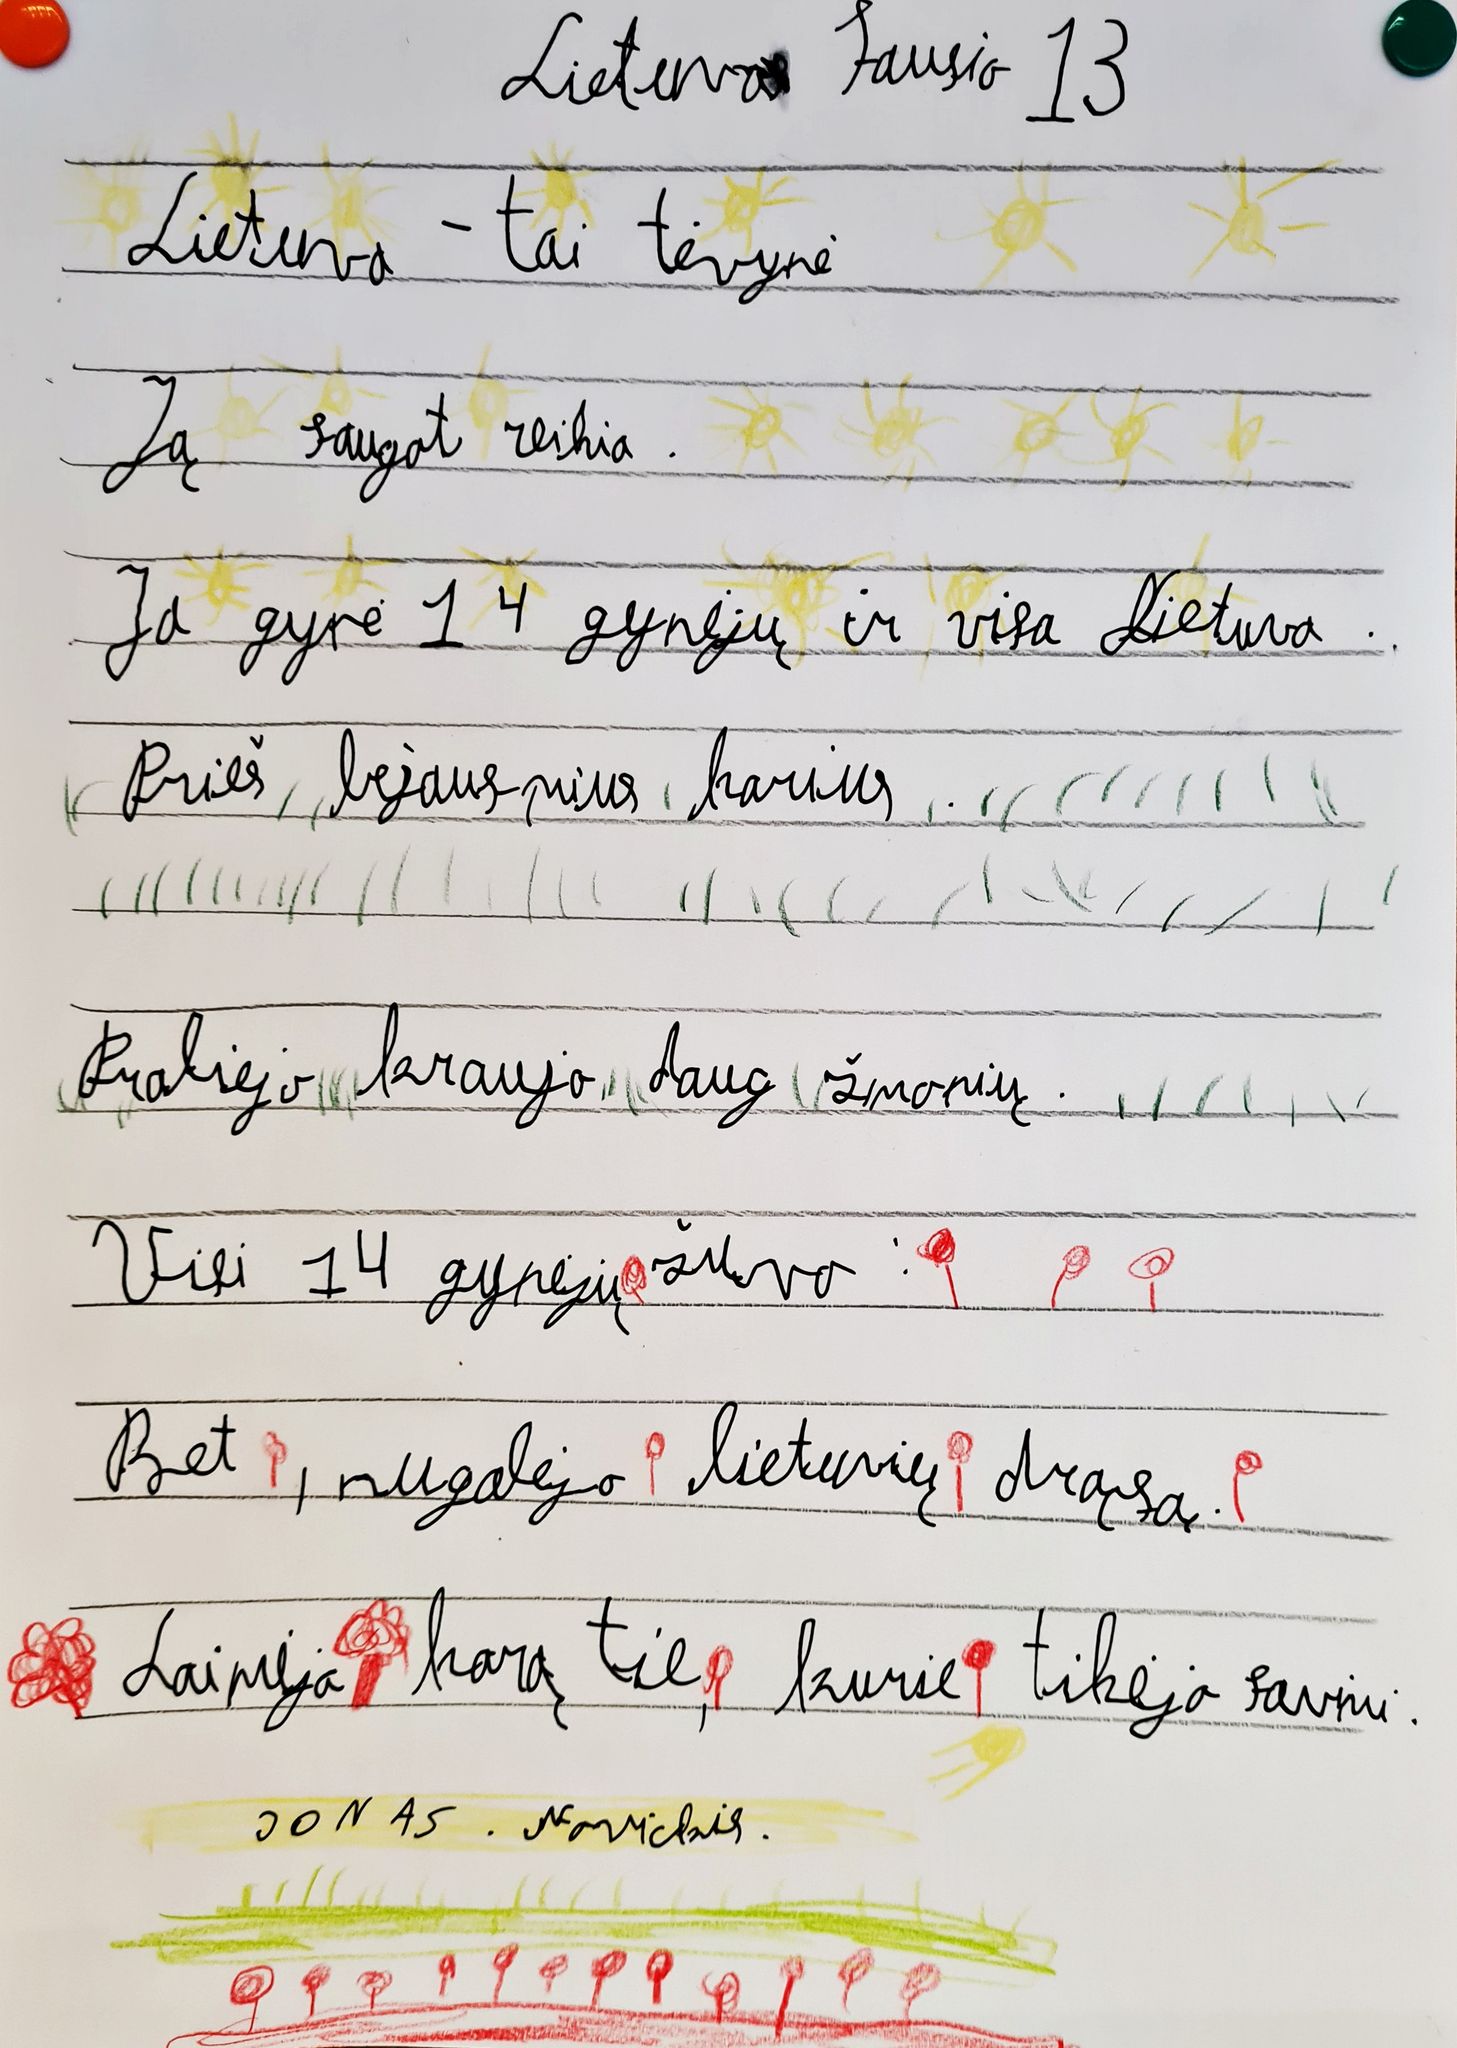 Lietuva Sausio 13
Lietuva - tai tėvynė
Ją saugot reikia.
Ja gynė 14 gynėjų ir visa Lietuva.
Prieš bejausmius karius.
Praliejo kraujo daug žmonių.
Visi 14 gynėjų žuvo.
Bet, nugalėjo lietuvių drąsa.
Laimėjo karą tie, kurie tikėjo savimi.
JONAS. Novickis.